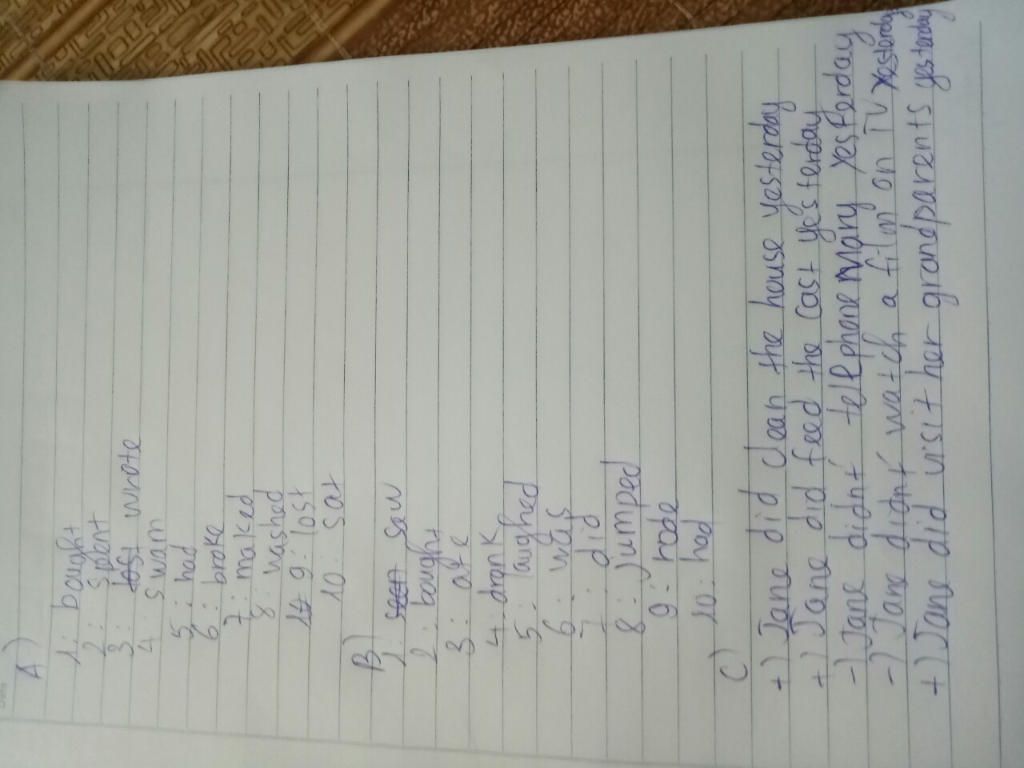 A)
1: bought
2: spent
3: wrote
4: swam
5: had
6: broke
7: maked
8: washed
9: lost
10: sat
B)
1: saw
2: bought
3: ate
4: drank
5: laughed
6: was
7: did
8: jumped
9: rode
10: had
C)
+) Jane did clean the house yesterday
+) Jane did feed the cast yesterday
-) Jane didn't telephone mary yesterday
-) Jane didn't watch a film on TV yesterday
+) Jane did visit her grandparents yesterday